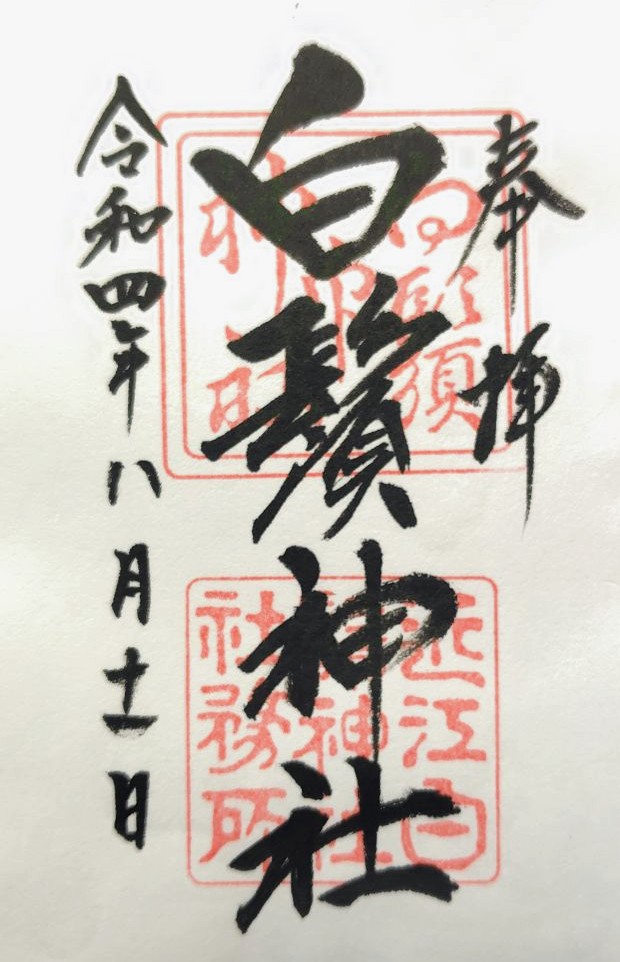 奉拝
白鬚神社
令和四年八月十一日
近江白
鬚神社
社務所